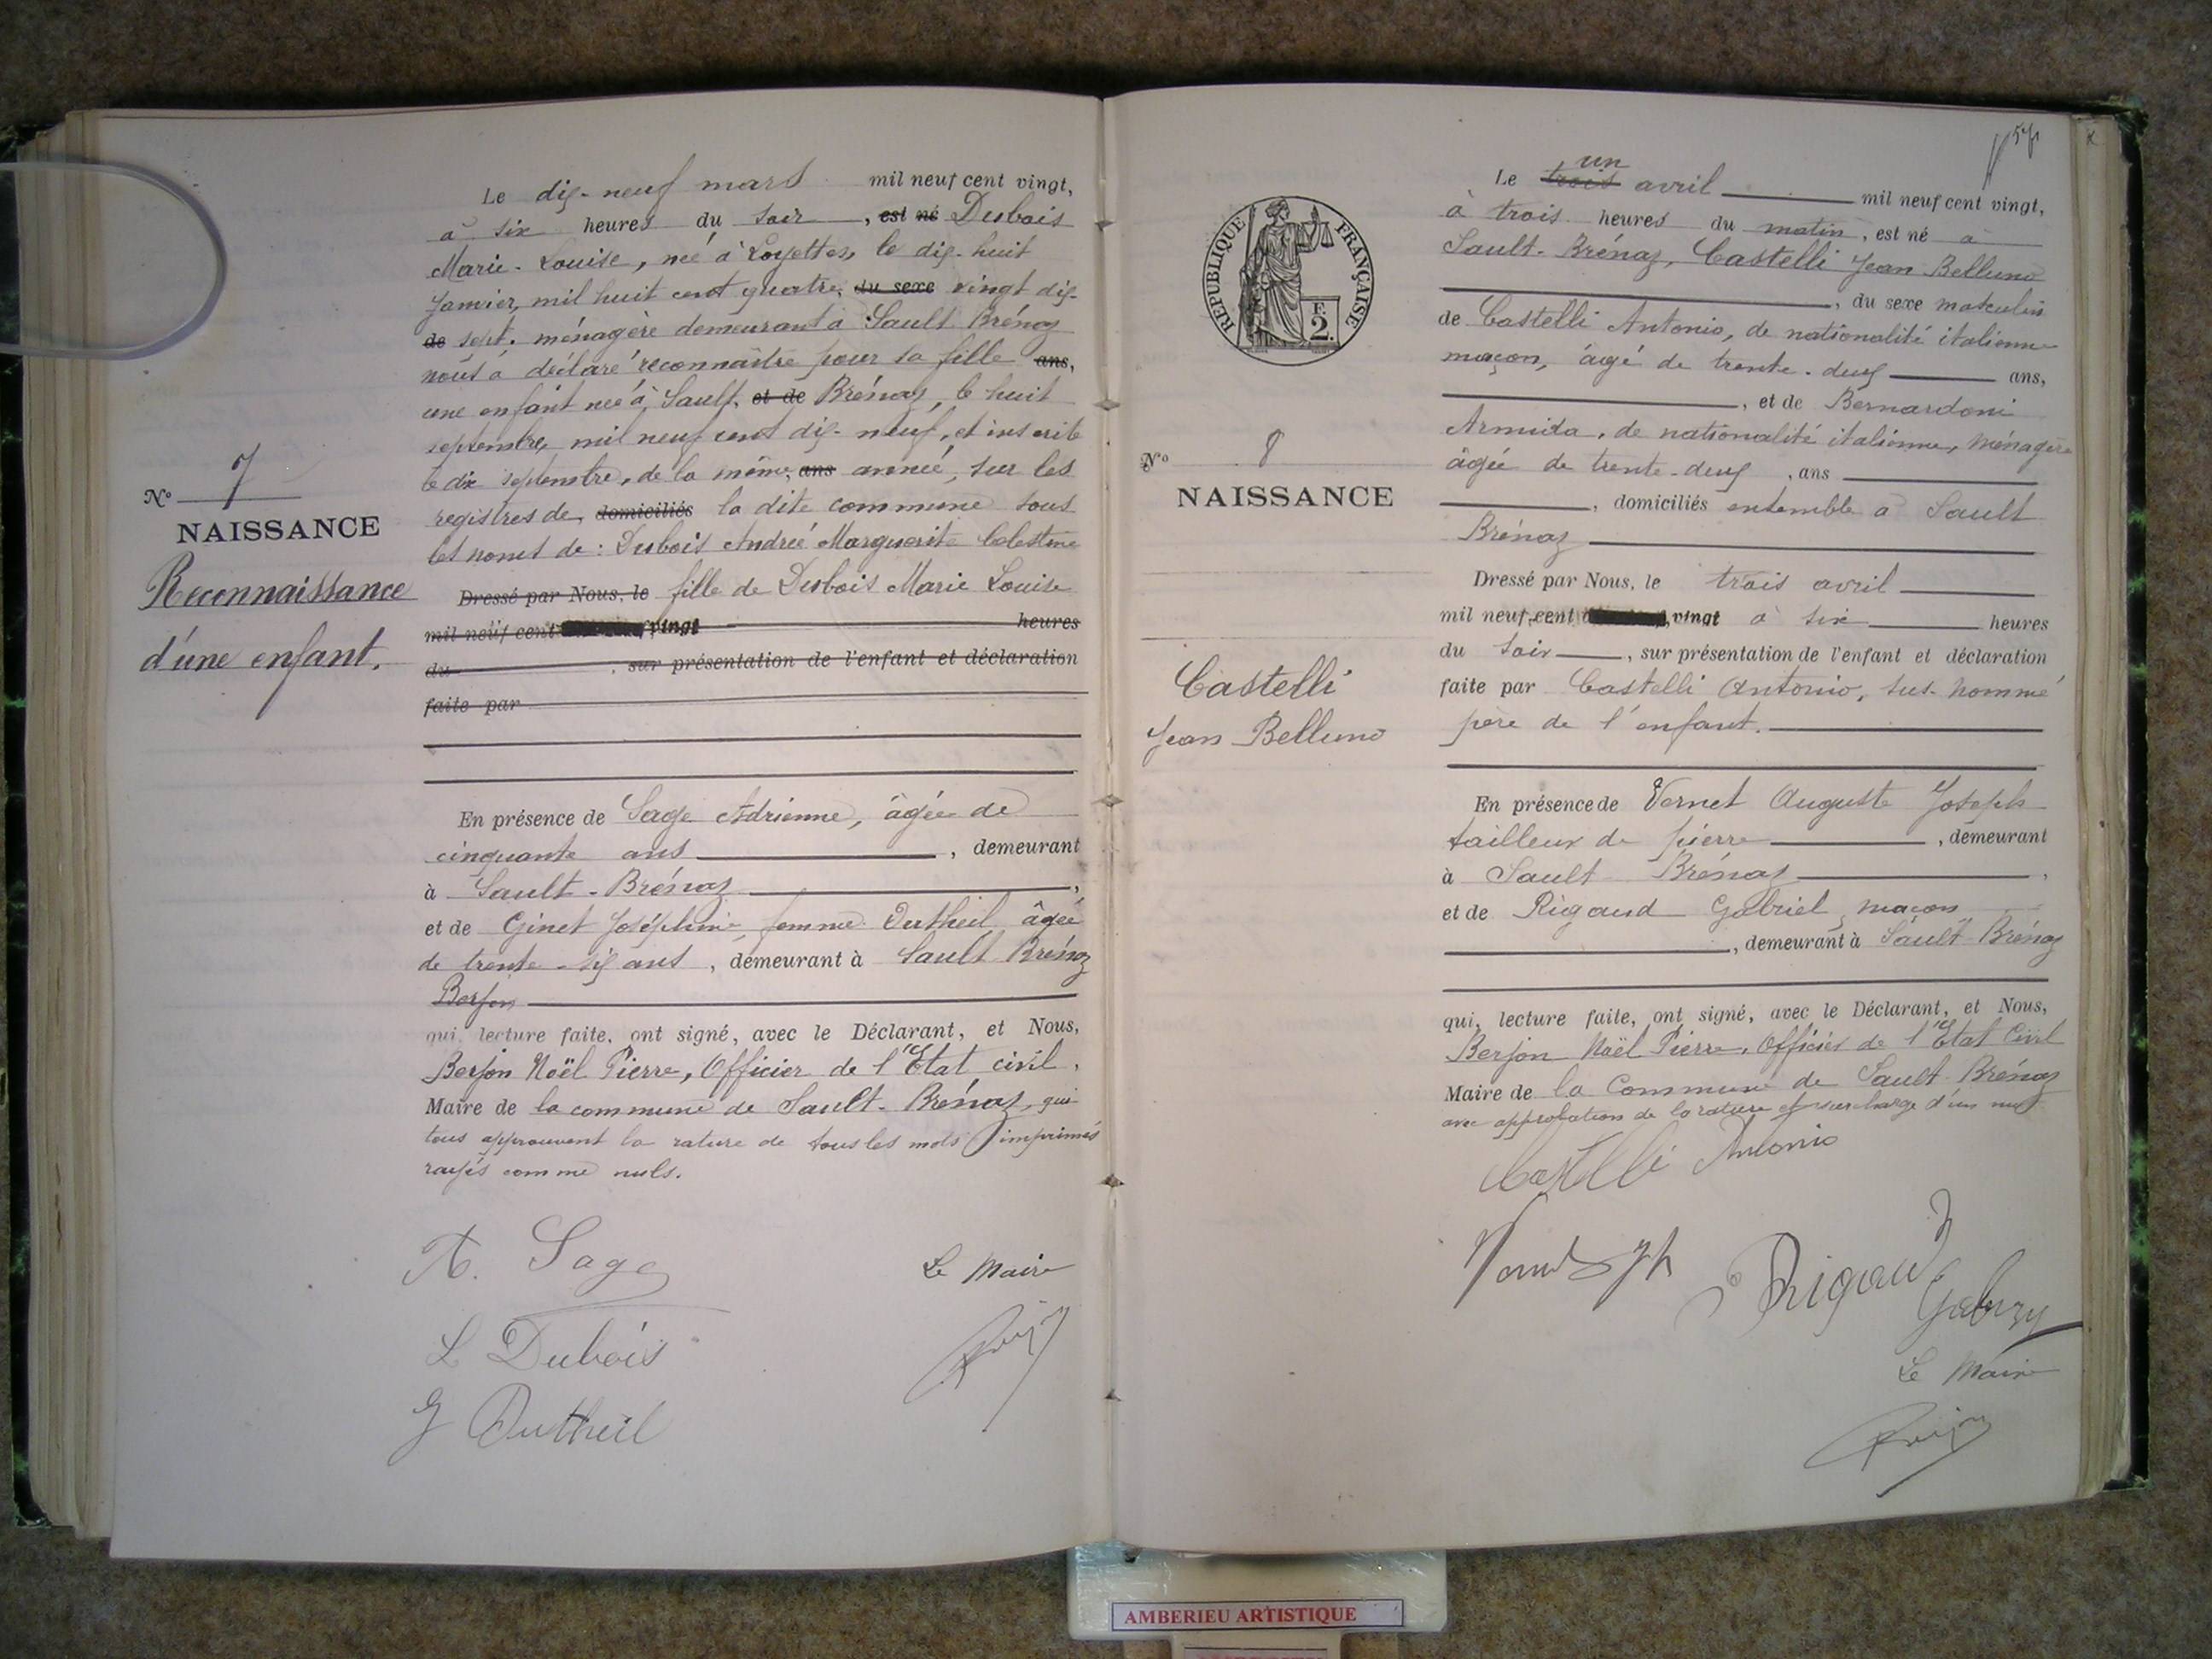 Le dix-neuf mars mil neuf cent vingt,
à six heures du soir, est né Dubois
Marie-Louise, née à Loyettes, le dix-huit
Janvier, mil huit cent quatre, du sexe vingt dix-
de sept, ménagère demeurant à Sault Brénaz
nous a déclaré reconnaître pour sa fille ans,
une enfant née à Sault, et de Brénaz, le huit
septembre, mil neuf cent dix-neuf, et inscrite
le dix septembre, de la même, ans année, sur les
registres de, domiciliés la dite commune sous
les noms de : Dubois Andrée Marguerite Célestine
Dressé par Nous, le fille de Dubois Marie Louise
mil neuf cent vingt heures
du , sur présentation de l'enfant et déclaration
faite par
En présence de Sage Adrienne, âgée de
cinquante ans, demeurant
à Sault-Brénaz,
et de Ginet Joséphine, femme Dutheil âgée
de trente-six ans, demeurant à Sault Brénaz
Berjon
qui, lecture faite, ont signé, avec le Déclarant, et Nous,
Berjon Noël Pierre, Officier de l'Etat civil,
Maire de la commune de Sault-Brénaz, qui
tous approuvent la rature de tous les mots imprimés
rayés comme nuls.
A. Sage
Le Maire
L Dubois
J Dutheil
No 7
NAISSANCE
Reconnaissance
d'une enfant.
un
Le trois avril mil neuf cent vingt,
à trois heures du matin, est né à
Sault-Brénaz, Castelli Jean Belluno
, du sexe masculin
de Castelli Antonio, de nationalité italienne
maçon, âgé de trente-deux ans,
, et de Bernardoni
Armida, de nationalité italienne, ménagère
âgée de trente-deux, ans
, domiciliés ensemble à Sault
Brénaz
Dressé par Nous, le trois avril
mil neuf cent vingt à six heures
du soir, sur présentation de l'enfant et déclaration
faite par Castelli Antonio, sus-nommé
père de l'enfant.
En présence de Vernet Auguste Joseph
tailleur de pierre, demeurant
à Sault Brénaz,
et de Rigaud Gabriel, maçon
, demeurant à Sault-Brénaz
qui, lecture faite, ont signé, avec le Déclarant, et Nous,
Berjon Noël Pierre, Officier de l'Etat Civil
Maire de la Commune de Sault-Brénaz
avec approbation de la rature et surcharge d'un mot
Castelli Antonio
Vernet Jh
Rigaud
Le Maire
No 8
NAISSANCE
Castelli
Jean Belluno
REPUBLIQUE FRANÇAISE
F.
2.
AMBERIEU ARTISTIQUE